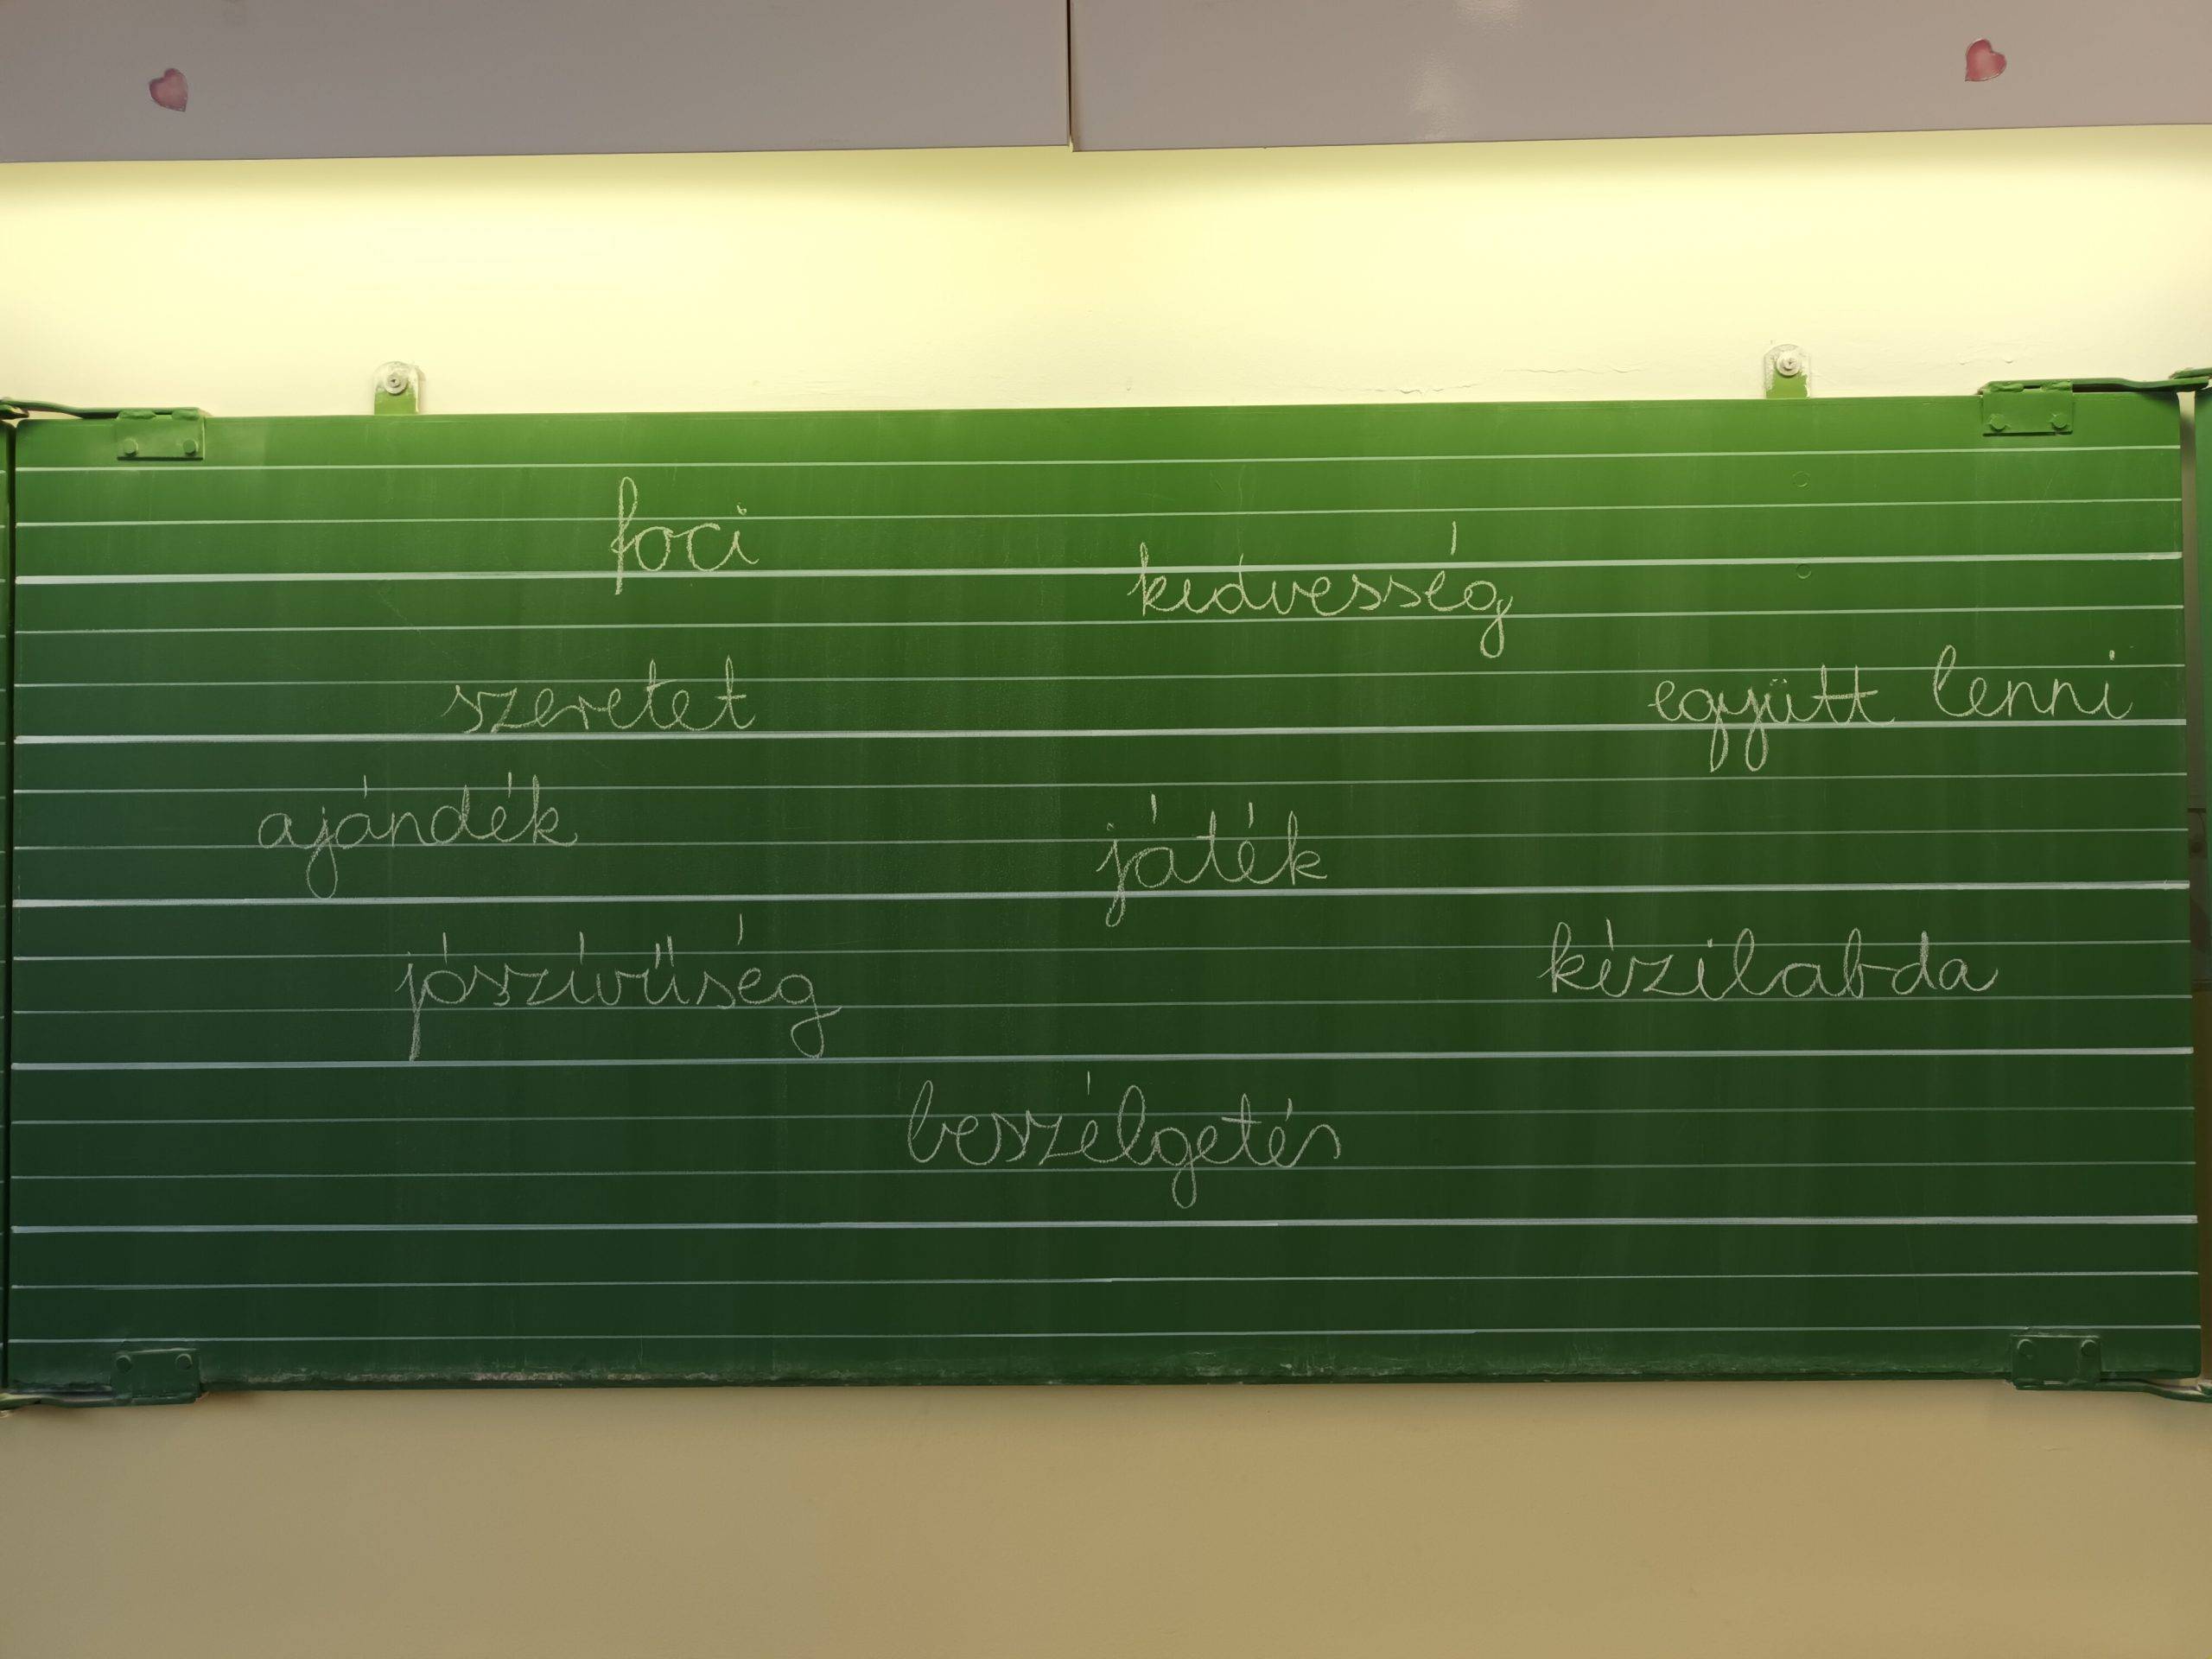 foci
kedvesség
szeretet
együtt lenni
ajándék
játék
jószívűség
kézilabda
beszélgetés